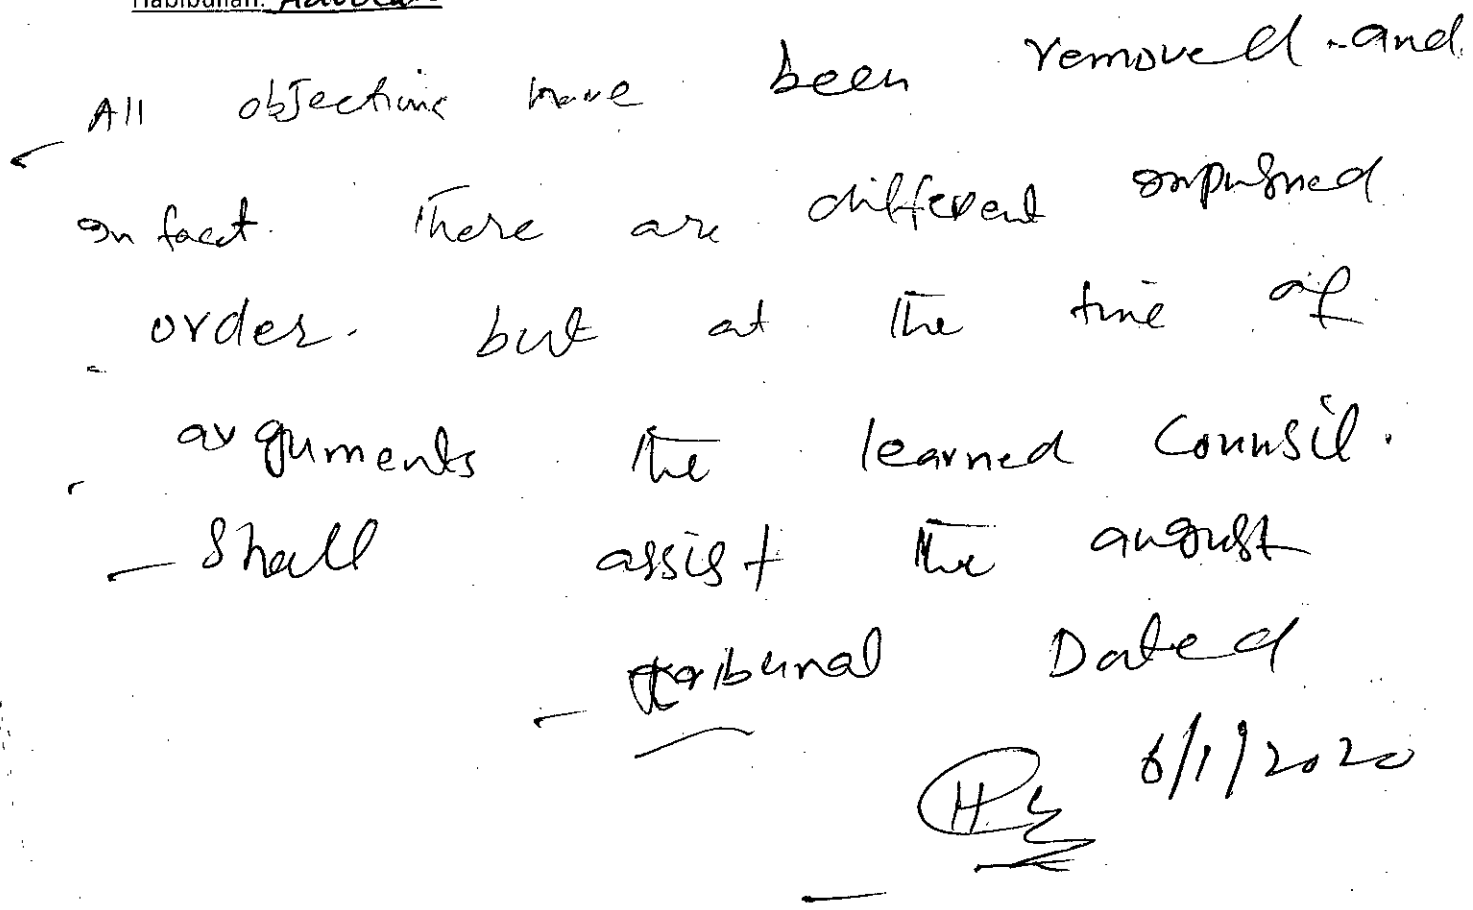 Habibullah. Advocate
All objections have been removed and
In fact there are different impugned
order. but at the time of
arguments the learned Counsil.
Shall assist the august
tribunal Dated
6/1/2020